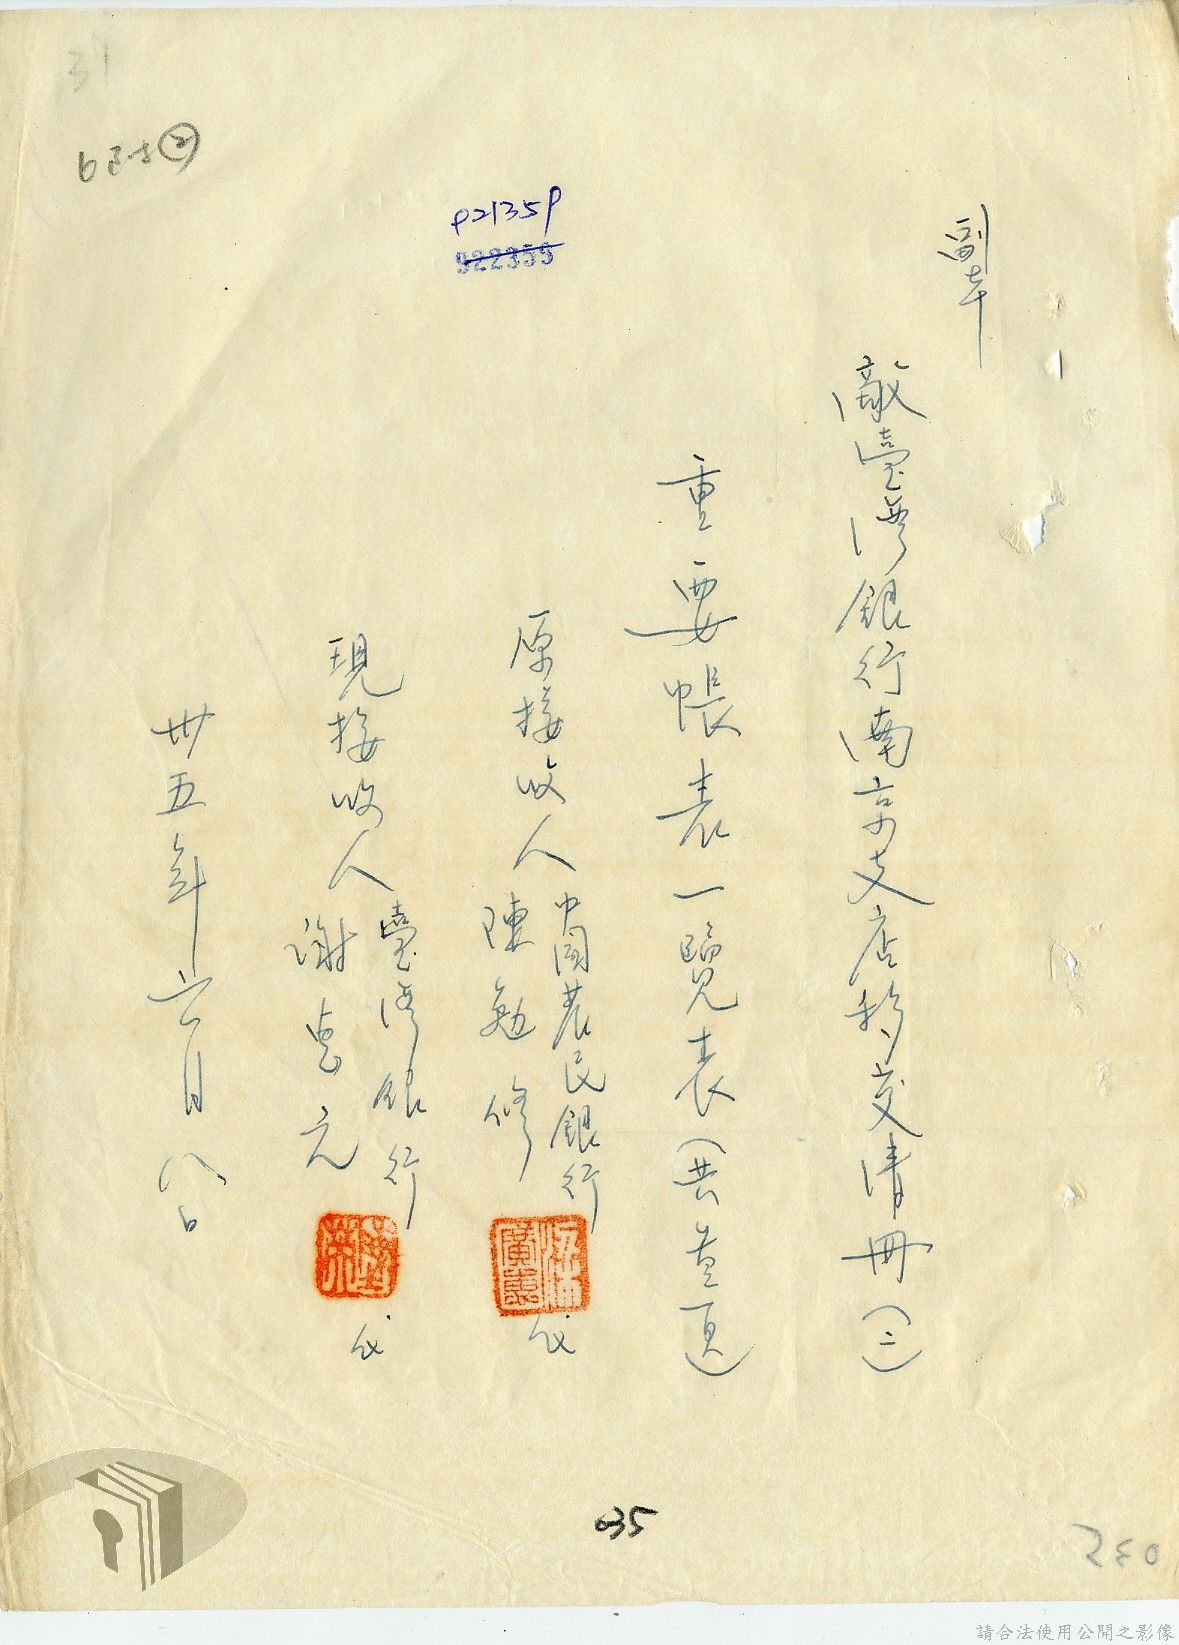 副本
敵臺灣銀行南京支店移交清冊(三)
重要帳表一覽表(共壹頁)
原接收人
中國農民銀行
陳勉修
代
現接收人
臺灣銀行
謝惠元
代
卅五年六月八日
922355
035
035
31
請合法使用公開之影像